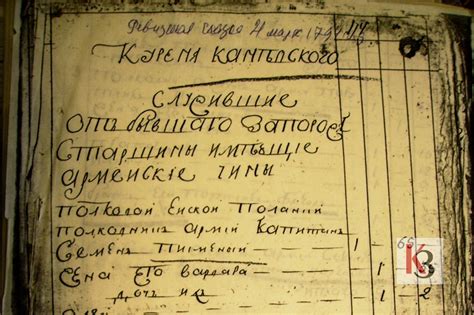 Ревизская сказка 4 марта 179
Куреня Кантъвского
служившие
отъ бывшаго Запорос
Старшины имъющіе
армейскіе чины
полковой Енской Поланий
полковникъ армій Капитанъ
Семенъ Писменый — 1
Ена Его варвара — 1
дочь их — 1 2
66
КЗ